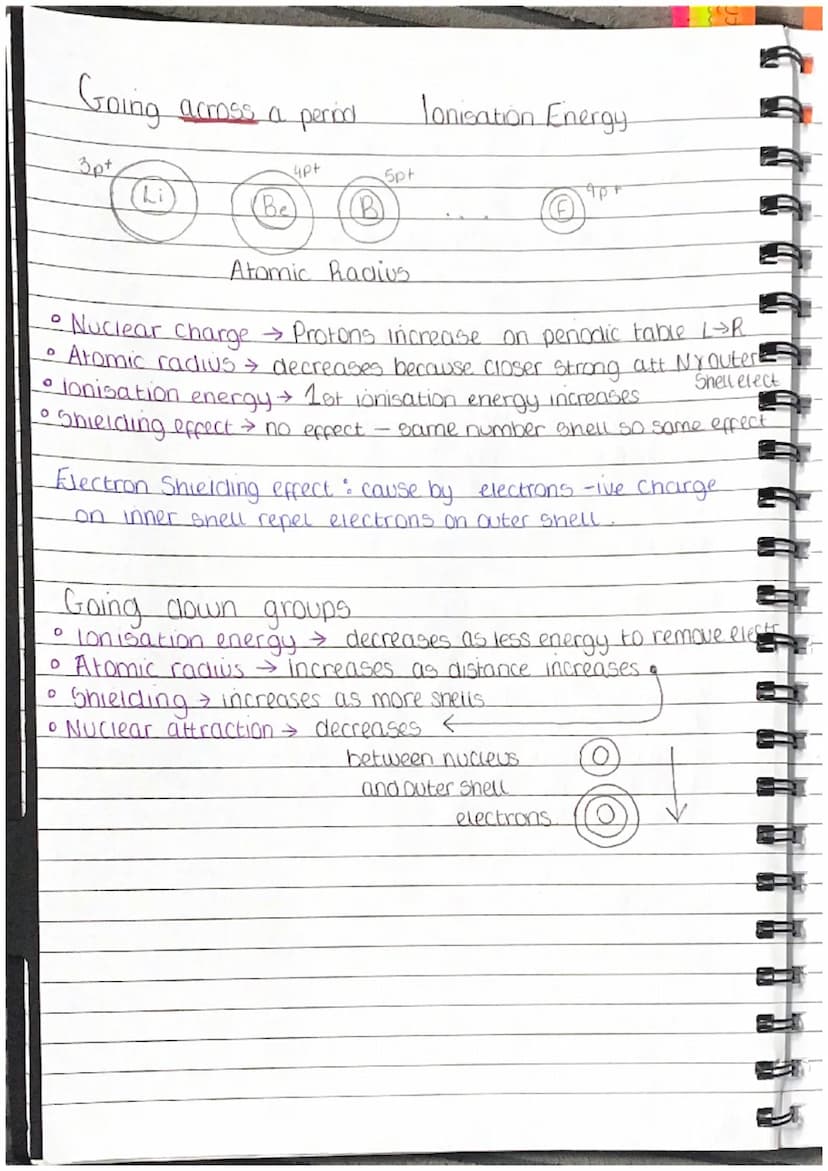 Going across a period Ionisation Energy
3p+ 4p+ 5p+ 9p+
Li Be B .... F
Atomic Radius
Nuclear charge → Protons increase on periodic table L→R
Atomic radius → decreases because closer strong att outer
Shell elect
Ionisation energy → 1st ionisation energy increases
Shielding effect → no effect - same number shell so same effect
Electron Shielding effect : cause by electrons -ive charge
on inner shell repel electrons on outer shell.
Going down groups
Ionisation energy → decreases as less energy to remove elect
Atomic radius → increases as distance increases
Shielding → increases as more shells
Nuclear attraction → decreases ←
between nucleus
and outer shell
electrons